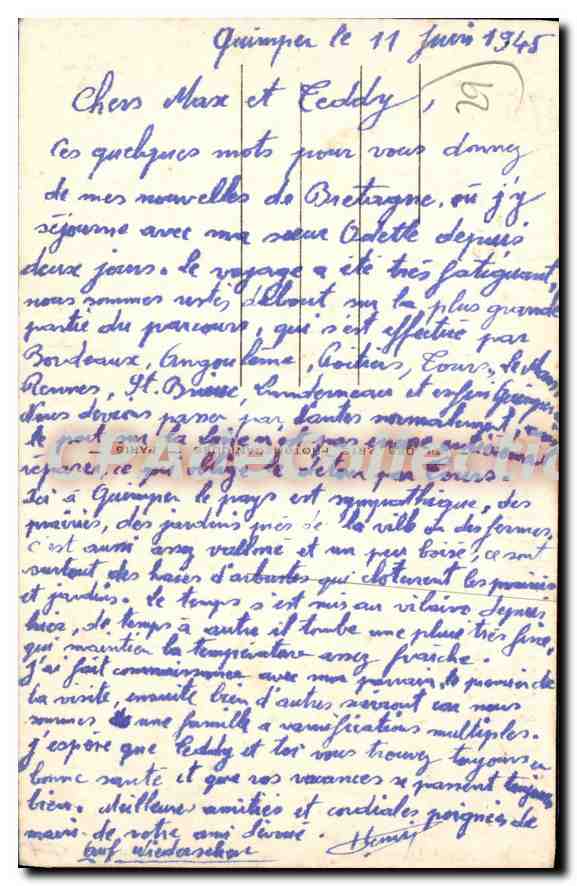 Quimper le 11 Juin 1945
29
Chers Max et Teddy,
Ces quelques mots pour vous donner
de mes nouvelles de Bretagne, où j'y
séjourne avec ma sœur Odette depuis
deux jours. Le voyage a été très fatiguant,
nous sommes restés debout sur la plus grande
partie du parcours, qui s'est effectué par
Bordeaux, Angoulême, Poitiers, Tours, Le Mans
Rennes, St. Brieuc, Landerneau et enfin Quimper.
Nous devions passer par Nantes normalement,
le pont sur la
réparer, ce qui par Tours.
Ici à Quimper le pays est sympathique, des
prairies, des jardins près de la ville ou des fermes.
C'est aussi assez vallonné et un peu boisé, ce sont
surtout des haies d'arbustes qui cloturent les prairies
et jardins. Le temps s'est mis au vilain depuis
hier, de temps à autre il tombe une pluie très fine,
qui maintien la température assez fraîche.
J'ai fait connaissance avec mon parrain, le premier de
la visite, ensuite bien d'autres suivront car nous
sommes une famille à ramifications multiples.
J'espère que Teddy et toi vous trouvez toujours en
bonne santé et que vos vacances se passent toujours
bien. Meilleures amitiés et cordiales poignées de
main de votre ami
Henry
auf wiedersehen
CPA Collection
PARIS